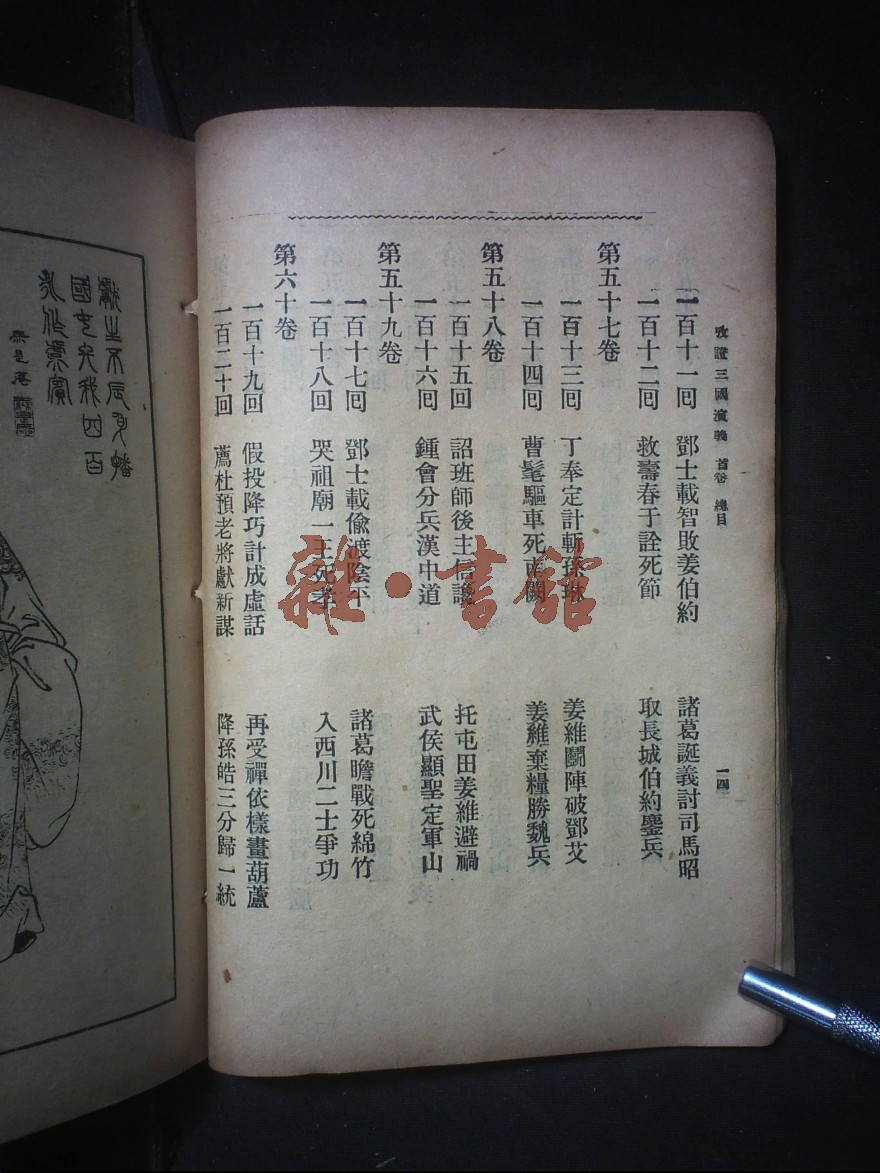 攷證三國演義 首卷 總目
一四
一百十一囘 鄧士載智敗姜伯約 諸葛誕義討司馬昭
一百十二囘 救壽春于詮死節 取長城伯約鏖兵
第五十七卷
一百十三囘 丁奉定計斬孫琳 姜維鬭陣破鄧艾
一百十四囘 曹髦驅車死南闕 姜維棄糧勝魏兵
第五十八卷
一百十五囘 詔班師後主信讒 托屯田姜維避禍
一百十六囘 鍾會分兵漢中道 武侯顯聖定軍山
第五十九卷
一百十七囘 鄧士載偸渡陰平 諸葛瞻戰死綿竹
一百十八回 哭祖廟一王死孝 入西川二士爭功
第六十卷
一百十九回 假投降巧計成虛話 再受禪依樣畫葫蘆
一百二十回 薦杜預老將獻新謀 降孫皓三分歸一統
獻生不辰身播
國屯終我四百
永作虞賓
雜·書館